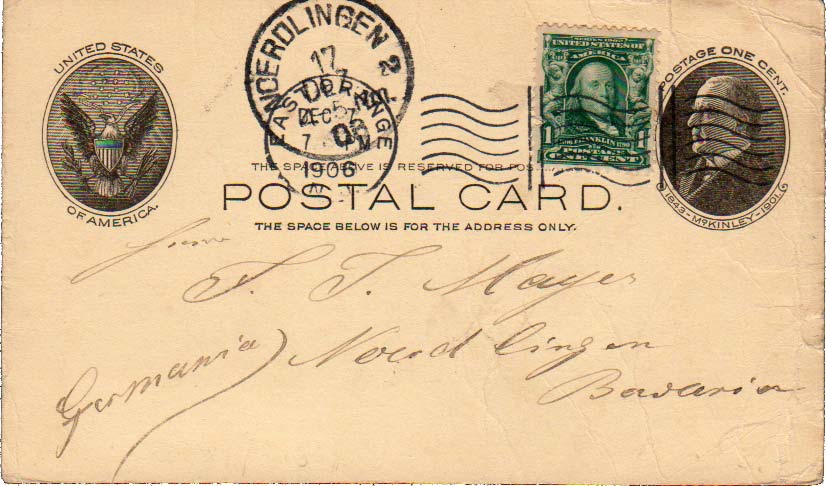 UNITED STATES
OF AMERICA.
NOERDLINGEN 2
17
DEZ
06
EAST ORANGE
DEC 5
7
1906
N.J.
SERIES 1902
UNITED STATES OF
AMERICA
1 FRANKLIN 1
POSTAGE
ONE CENT
POSTAGE ONE CENT.
1843-McKINLEY-1901.
THE SPACE ABOVE IS RESERVED FOR POS
POSTAL CARD.
THE SPACE BELOW IS FOR THE ADDRESS ONLY.
J. J. Mayer
(Germania) Noerdlingen
Bavaria